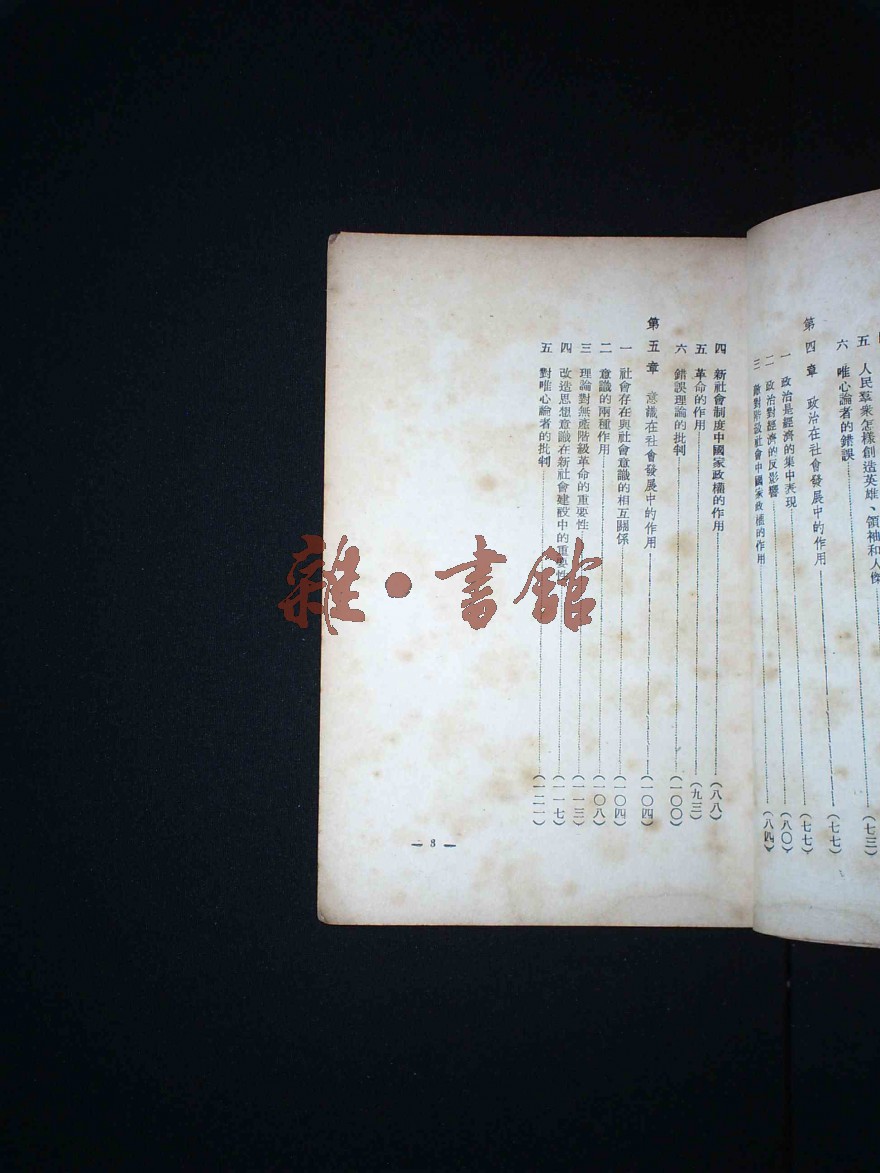 五 人民羣衆怎樣創造英雄、領袖和人傑……(七三)
六 唯心論者的錯誤……(七七)
第四章 政治在社會發展中的作用……(七七)
一 政治是經濟的集中表現……(八〇)
二 政治對經濟的反影響……(八四)
三 敵對階級社會中國家政權的作用
四 新社會制度中國家政權的作用……(八八)
五 革命的作用……(九三)
六 錯誤理論的批判……(一〇〇)
第五章 意識在社會發展中的作用……(一〇四)
一 社會存在與社會意識的相互關係……(一〇四)
二 意識的兩種作用……(一〇八)
三 理論對無產階級革命的重要性……(一一三)
四 改造思想意識在新社會建設中的重要性……(一一七)
五 對唯心論者的批判……(一二一)
— 3 —
雜·書館